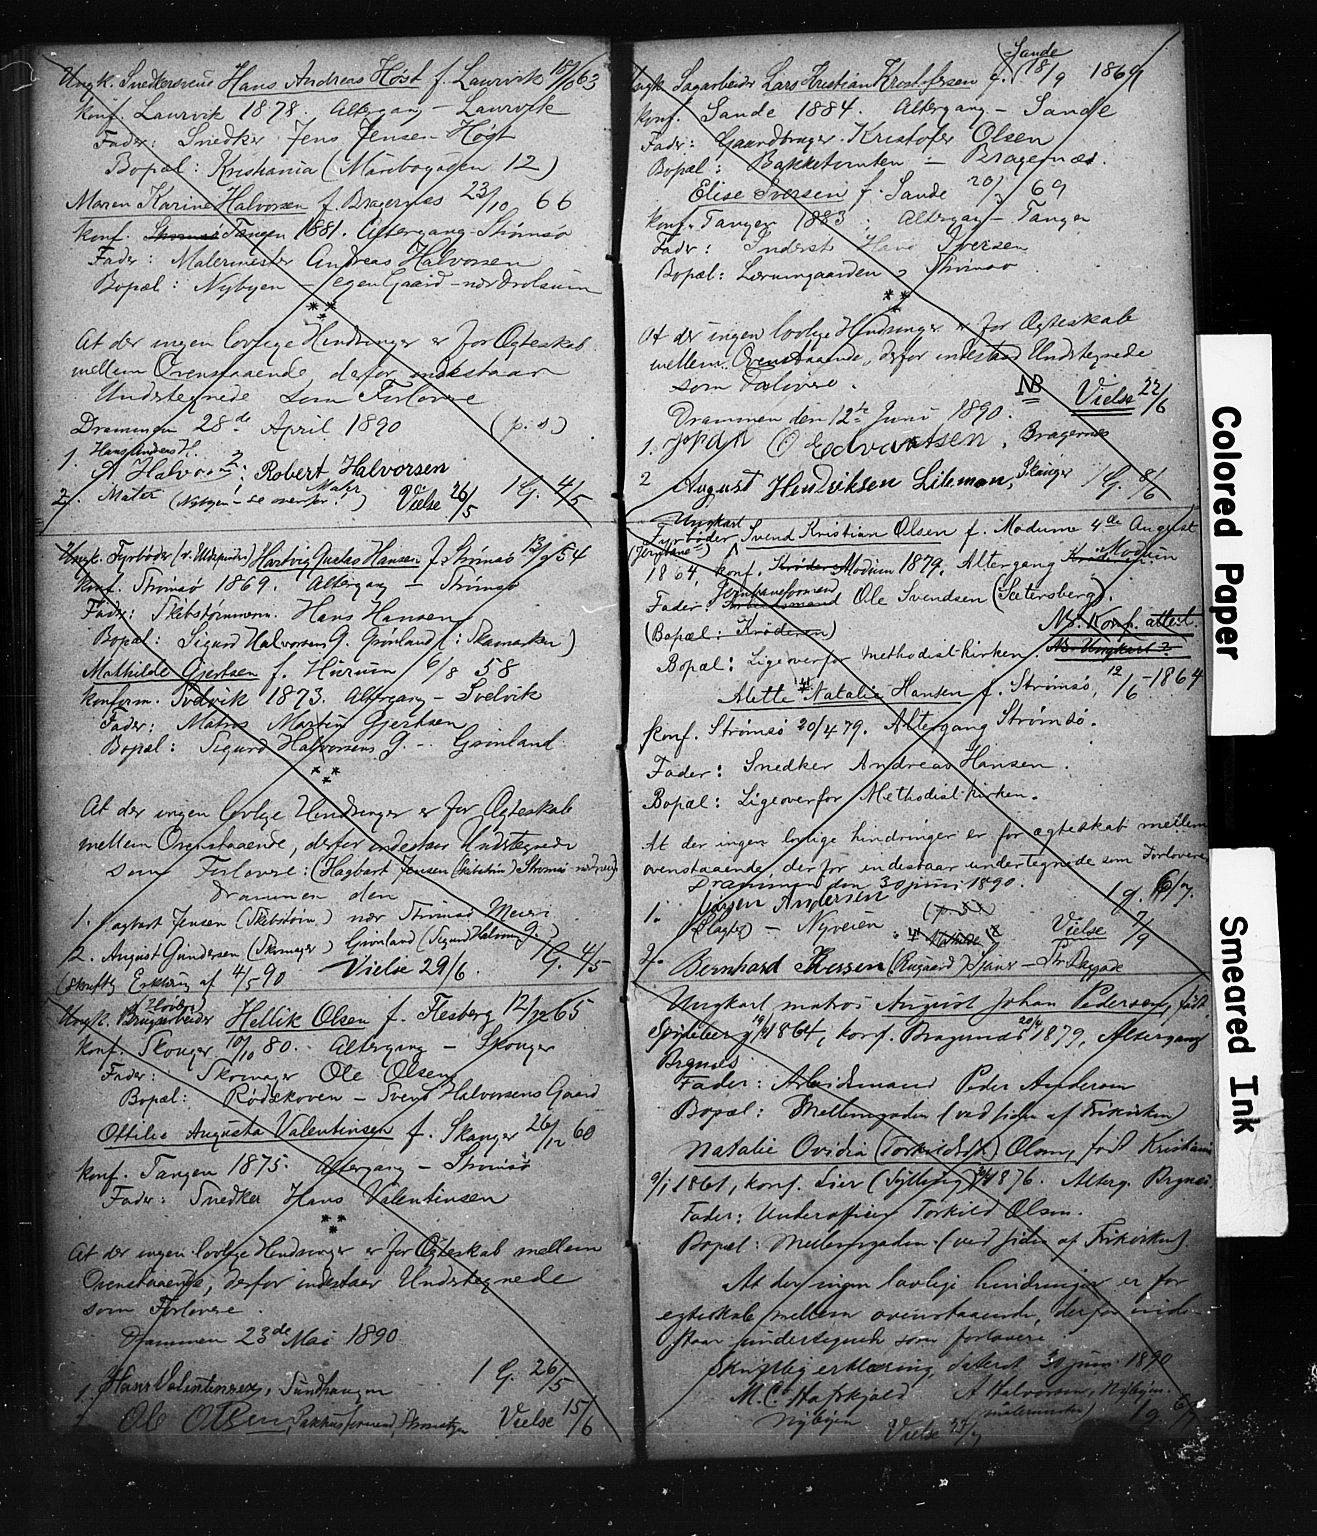 Ungk. Snedkersvend Hans Andreas Höst f. Laurvik 18/10 63
konf. Laurvik 1878. Altergang – Laurvik
Fader: Snedker Jens Jensen Høst
Bopæl: Kristiania (Maribogaden 12)
Maren Karine Halvorsen f. Bragernæs 23/10 66
konf. Tangen 1881. Altergang – Strømsø
Fader: Malermester Andreas Halvorsen
Bopæl: Nybyen – egen Gaard – nær
At der ingen lovlige Hindringer er for Ægteskab
mellem Ovenstaaende, derfor indestaar
Undertegnede som Forlovere
Drammen 28de April 1890 (p. s)
1. Hans Anders H.
A Halvorsen: Robert Halvorsen
2. Maler (Nybyen – se overfor!) Vielse 26/5 1 G. 4/5
Ungk. Fyrbøder Hartvig Gustav Hansen f. Strømsø 13/9 54
konf. Strømsø 1869. Altergang – Strømsø
Fader: Skibstømmerm. Hans Hansen
Bopæl: Sigurd Halvorsens G. Grønland
Mathilde Gjertsen f. Hurum 6/8 58
konform. Svelvik 1873. Altergang – Svelvik
Fader: Matros Martin Gjertsen
Bopæl: Sigurd Halvorsens G. – Grønland
At der ingen lovlige Hindringer er for Ægteskab
mellem Ovenstaaende, derfor indestaar Undertegnede
som Forlovere: (Hagbart Jensen Strømsø
Drammen den
1. Hagbart Jensen (Skibstøm.) nær Strømsø Meieri
2. August Gundersen (Skomager) Grønland (Sigurd Halvors. G.)
(Skriftlig Erklæring af 4/5 90 Vielse 29/6. 1 G. 4/5
Ungk. Brugsarbeider Hellik Olsen f. Flesberg 12/12 65
konf. Skoger 10/10 80. Altergang – Skoger
Fader: Skomager Ole Olsen
Bopæl: Rødskoven – Svend Halvorsens Gaard
Ottilie Augusta Valentinsen f. Skanger 26/12 60
konf. Tangen 1875. Altergang – Strømsø
Fader: Snedker Hans Valentinsen
At der ingen lovlige Hindringer er for Ægteskab mellem
Ovenstaaende, derfor indestaar Undertegnede
som Forlovere.
Drammen 23de Mai 1890
1. Hans Valentinsen, Sundhaugen 1 G. 26/5
Ole Olsen, Vielse 15/6
Sande
Ungk. Sagarbeider Lars Kristian Kristofersen f. 18/9 1869
konf. Sande 1884. Altergang – Sande
Fader: Gaardbruger Kristofer Olsen
Bopæl: Bakketomten – Bragernæs.
Elise Iversen f. Sande 69
konf. Tangen 1883. Altergang – Tangen
Fader: Inderst Hans Iversen
Bopæl: Strømsø
At der ingen lovlige Hindringer er for Ægteskab
mellem Ovenstaaende, derfor indestaar Undertegnede
som Forlovere.
NB Vielse 22/6
Drammen den 12te Juni 1890.
1. O Edvartsen. Bragernes
2 August Hendriksen Lileman, Skanger 1 G. 8/6
Ungkart
Fyrbøder Svend Kristian Olsen f. Modum 4de August
1864, konf. Modum 1879, Altergang Modum
Fader: Ole Svendsen (Sætersberg).
(Bopæl: Krøderen) NB. Konf. attest.
Bopæl: Ligeoverfor methodist-kirken. NB. Ungkart?
Alette Natalie Hansen f. Strømsø, 12/6 – 1864
konf. Strømsø 20/4 79. Altergang Strømsø.
Fader: Snedker Andreas Hansen.
Bopæl: Ligeoverfor Methodist-kirken.
At der ingen lovlige hindringer er for ægteskab mellem
ovenstaaende, derfor indestaar undertegnede som Forlovere
Drammen den 30 juni 1890. 1 g. 6/7.
1. Jørgen Andersen
(Slagter) – Nyveien Vielse 7/9
2. Bernhard
Ungkart, matros August Johan Pedersen, født
Spydeberg 1864, konf. Bragernes 1879, Altergang
Brgnes
Fader: Arbeidsmand Peder Andersen
Bopæl: Mellemgaden (ved siden af Frikirken)
Natalie Ovidia (Torkildsd.) Olsen, født Kristiania
9/1 1861, konf. Lier (Sylling) 1876. Alterg. Brgnes.
Fader: Underofficer Torkild Olsen.
Bopæl: Mellemgaden (ved siden af Frikirken).
At der ingen lovlige hindringer er for
egteskab mellem ovenstaaende, derfor inde-
staar undertegnede som forlovere
Skriftlig erklæring, dateret 30 juni 1890
M. C. Hafskjold A Halvorsen, Nybyen.
Nybyen (malermester) 1 g 6/7
Vielse 25/7
Colored Paper
Smeared Ink